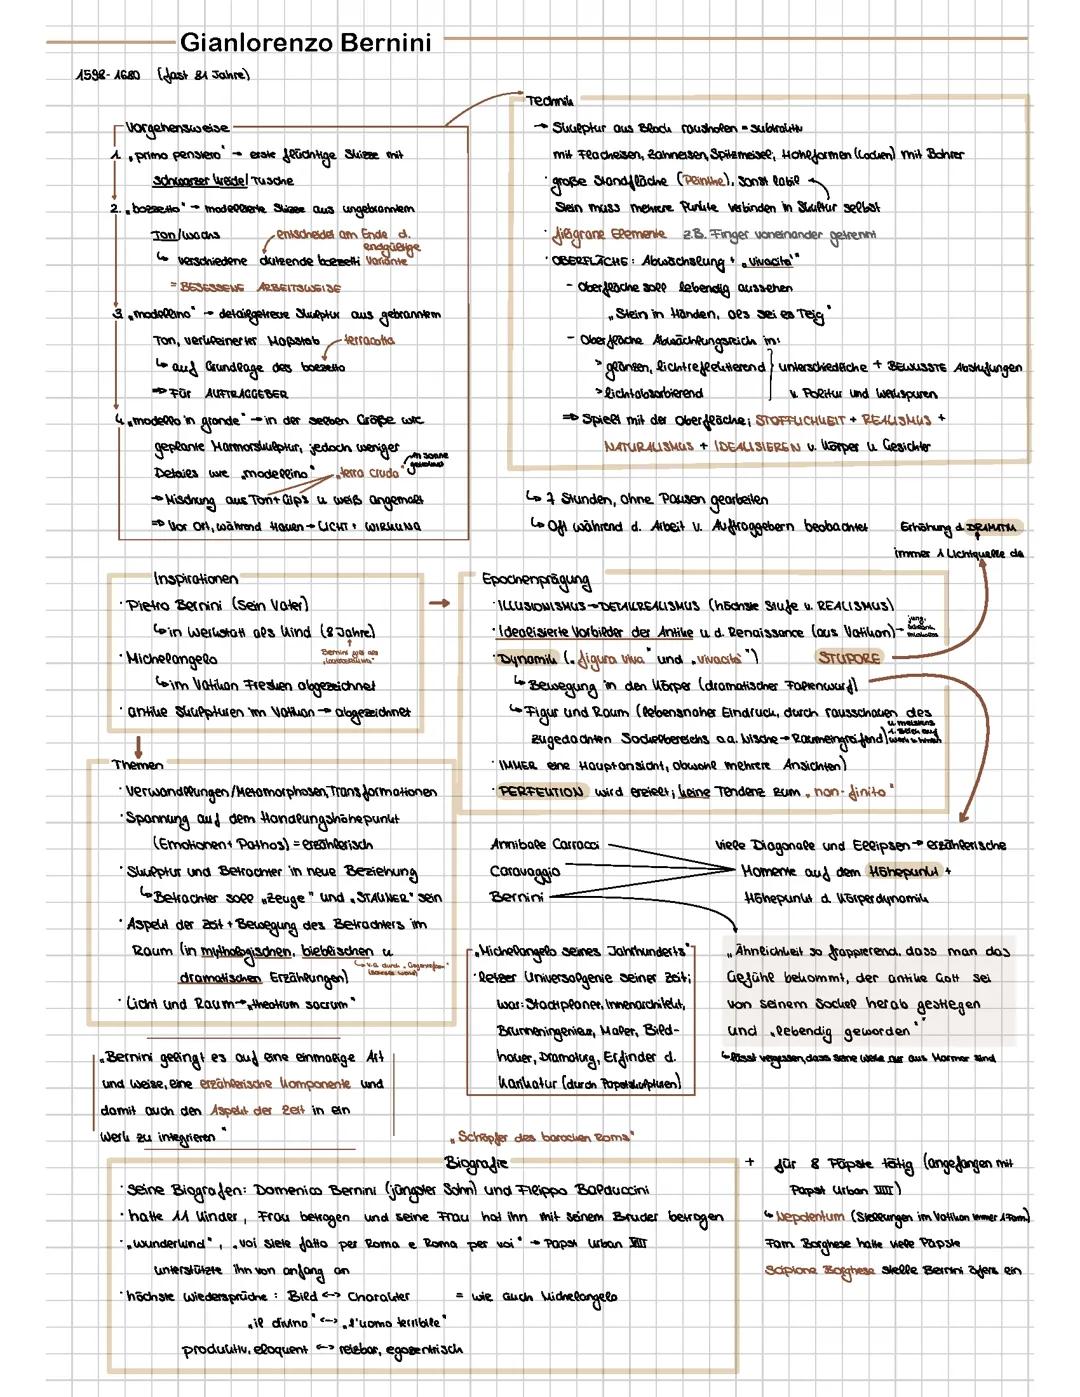 Gianlorenzo Bernini
1598-1680 (fast 81 Jahre)
Vorgehensweise
1. „primo pensiero" → erste flüchtige Skizze mit
schwarzer Kreide/Tusche
2. „bozzetto" → modellierte Skizze aus ungebranntem
Ton/Wachs
entscheidet am Ende d. endgültige Variante
↳ verschiedene dutzende bozzetti
= BESESSENE ARBEITSWEISE
3. „modellino" → detailgetreue Skulptur aus gebranntem
Ton, verkleinerter Maßstab terracotta
↳ auf Grundlage des bozzetto
⇒ Für AUFTRAGGEBER
4. „modello in grande" → in der selben Größe wie
geplante Marmorskulptur, jedoch weniger
Details wie „modellino" „terra cruda" in Sonne getrocknet
→ Mischung aus Ton + Gips u. weiß angemalt
⇒ Vor Ort, während Hauen → LICHT + WIRKUNG
Technik
→ Skulptur aus Block rausholen = subtraktiv
mit Flacheisen, Zahneisen, Spitzmeisel, Hohlformen (Locken) mit Bohrer
· große Standfläche (Plinthe), sonst labil
Stein muss mehrere Punkte verbinden in Skulptur selbst
· filigrane Elemente z.B. Finger voneinander getrennt
· OBERFLÄCHE: Abwechslung + „vivacita'"
- Oberfläche soll lebendig aussehen
„Stein in Händen, als sei es Teig"
- Oberfläche Abwächlungsreich in:
> glänzen, lichtreflektierend } unterschiedliche + BEWUSSTE Abstufungen
> lichtabsorbierend v. Politur und Werkspuren
⇒ Spielt mit der Oberfläche; STOFFLICHKEIT + REALISMUS +
NATURALISMUS + IDEALISIEREN v. Körper u. Gesichter
↳ 7 Stunden, ohne Pausen gearbeiten
↳ Oft während d. Arbeit v. Auftraggebern beobachtet
Erhöhung d. DRAMATIK
immer 1 Lichtquelle da
Inspirationen
· Pietro Bernini (Sein Vater)
↳ in Werkstatt als Kind (8 Jahre)
· Michelangelo
↳ im Vatikan Fresken abgezeichnet
· antike Skulpturen im Vatikan → abgezeichnet
Epochenprägung
· ILLUSIONISMUS → DETAILREALISMUS (höchste Stufe v. REALISMUS)
· Idealisierte Vorbilder der Antike u. d. Renaissance (aus Vatikan)
· Dynamik („figura viva" und „vivacita'") STUPORE
↳ Bewegung in den Körper (dramatischer Faltenwurf)
↳ Figur und Raum (lebensnaher Eindruck, durch rausschauen des
zugedachten Sockelbereichs o.a. Nische → Raumeingreifend)
· IMMER eine Hauptansicht, obwohl mehrere Ansichten)
· PERFEKTION wird erzielt; keine Tendenz zum „non-finito"
Themen
· Verwandlungen/Metamorphosen, Transformationen
· Spannung auf dem Handlungshöhepunkt
(Emotionen + Pathos) = erzählerisch
· Skulptur und Betrachter in neue Beziehung
↳ Betrachter soll „Zeuge" und „STAUNER" sein
· Aspekt der Zeit + Bewegung des Betrachters im
Raum (in mythologischen, bieblischen u.
dramatischen Erzählungen)
· Licht und Raum → „theatrum sacrum"
Annibale Carracci
Caravaggio
Bernini
viele Diagonale und Ellipsen → erzählerische
Momente auf dem Höhepunkt +
Höhepunkt d. Körperdynamik
„Michelangelo seines Jahrhunderts"
· letzer Universalgenie seiner Zeit;
war: Stadtplaner, Innenarchitekt,
Brunneningenieur, Maler, Bild-
hauer, Dramaturg, Erfinder d.
Karikatur (durch Papstskulpturen)
„Ähnlichkeit so frappierend, dass man das
Gefühl bekommt, der antike Gott sei
von seinem Sockel herab gestiegen
und „lebendig geworden""
↳ lässt vergessen, dass seine Werke nur aus Marmor sind
„Bernini gelingt es auf eine einmalige Art
und Weise, eine erzählerische Komponente und
damit auch den Aspekt der Zeit in ein
Werk zu integrieren"
„Schöpfer des barocken Roms"
Biografie
· seine Biografen: Domenico Bernini (jüngster Sohn) und Filippo Balduccini
· hatte 11 Kinder, Frau betrogen und seine Frau hat ihn mit seinem Bruder betrogen
· „Wunderkind", „voi siete fatto per Roma e Roma per voi" → Papst Urban VIII
unterstützte ihn von anfang an
· höchste Wiedersprüche: Bild <-> Charakter = wie auch Michelangelo
„il divino" <-> „l'uomo terribile"
produktiv, eloquent <-> reizbar, egozentrisch
+ für 8 Päpste tätig (angefangen mit
Papst Urban VIII)
↳ Nepotentum (Stellungen im Vatikan immer 1 Fam)
Fam. Borghese hatte viele Päpste
Scipione Borghese stellte Bernini öfters ein